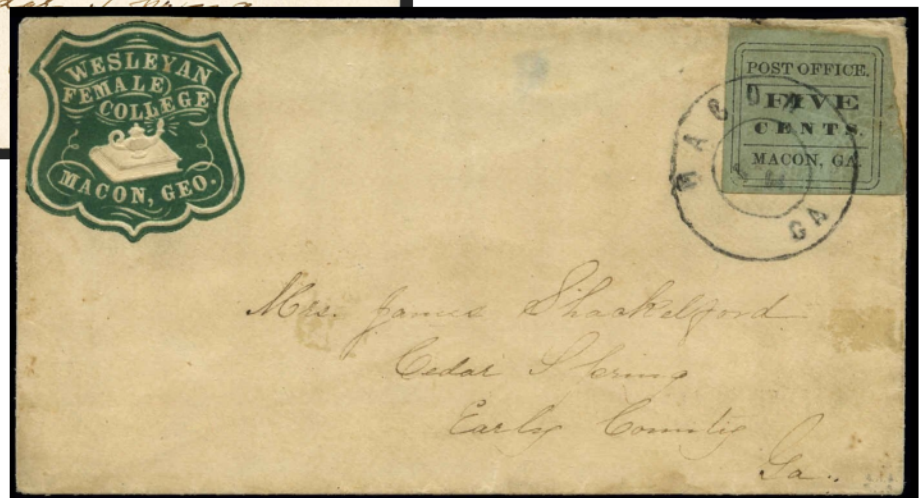 WESLEYAN
FEMALE
COLLEGE
MACON, GEO.
POST OFFICE.
FIVE
CENTS.
MACON, GA.
MACON
GA
Mrs. James Shackelford
Cedar Spring
Early County
Ga.